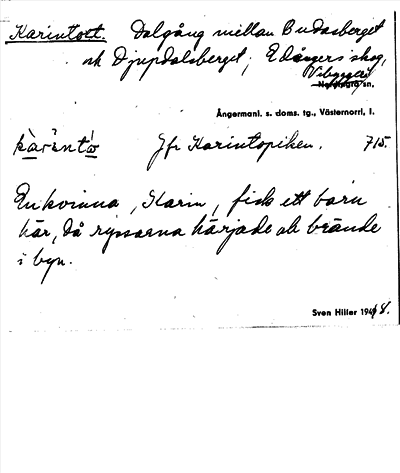 Karintött. Dalgång mellan Budasberget
och Djupdalsberget, Edångers skog,
Vibyggerå
Nordingrå sn,
Ångermanl. s. doms. tg., Västernorrl. l.
Jfr Karintopiken. 715.
En kvinna, Karin, fick ett barn
här, då ryssarna härjade och brände
i byn.
Sven Hiller 1948.